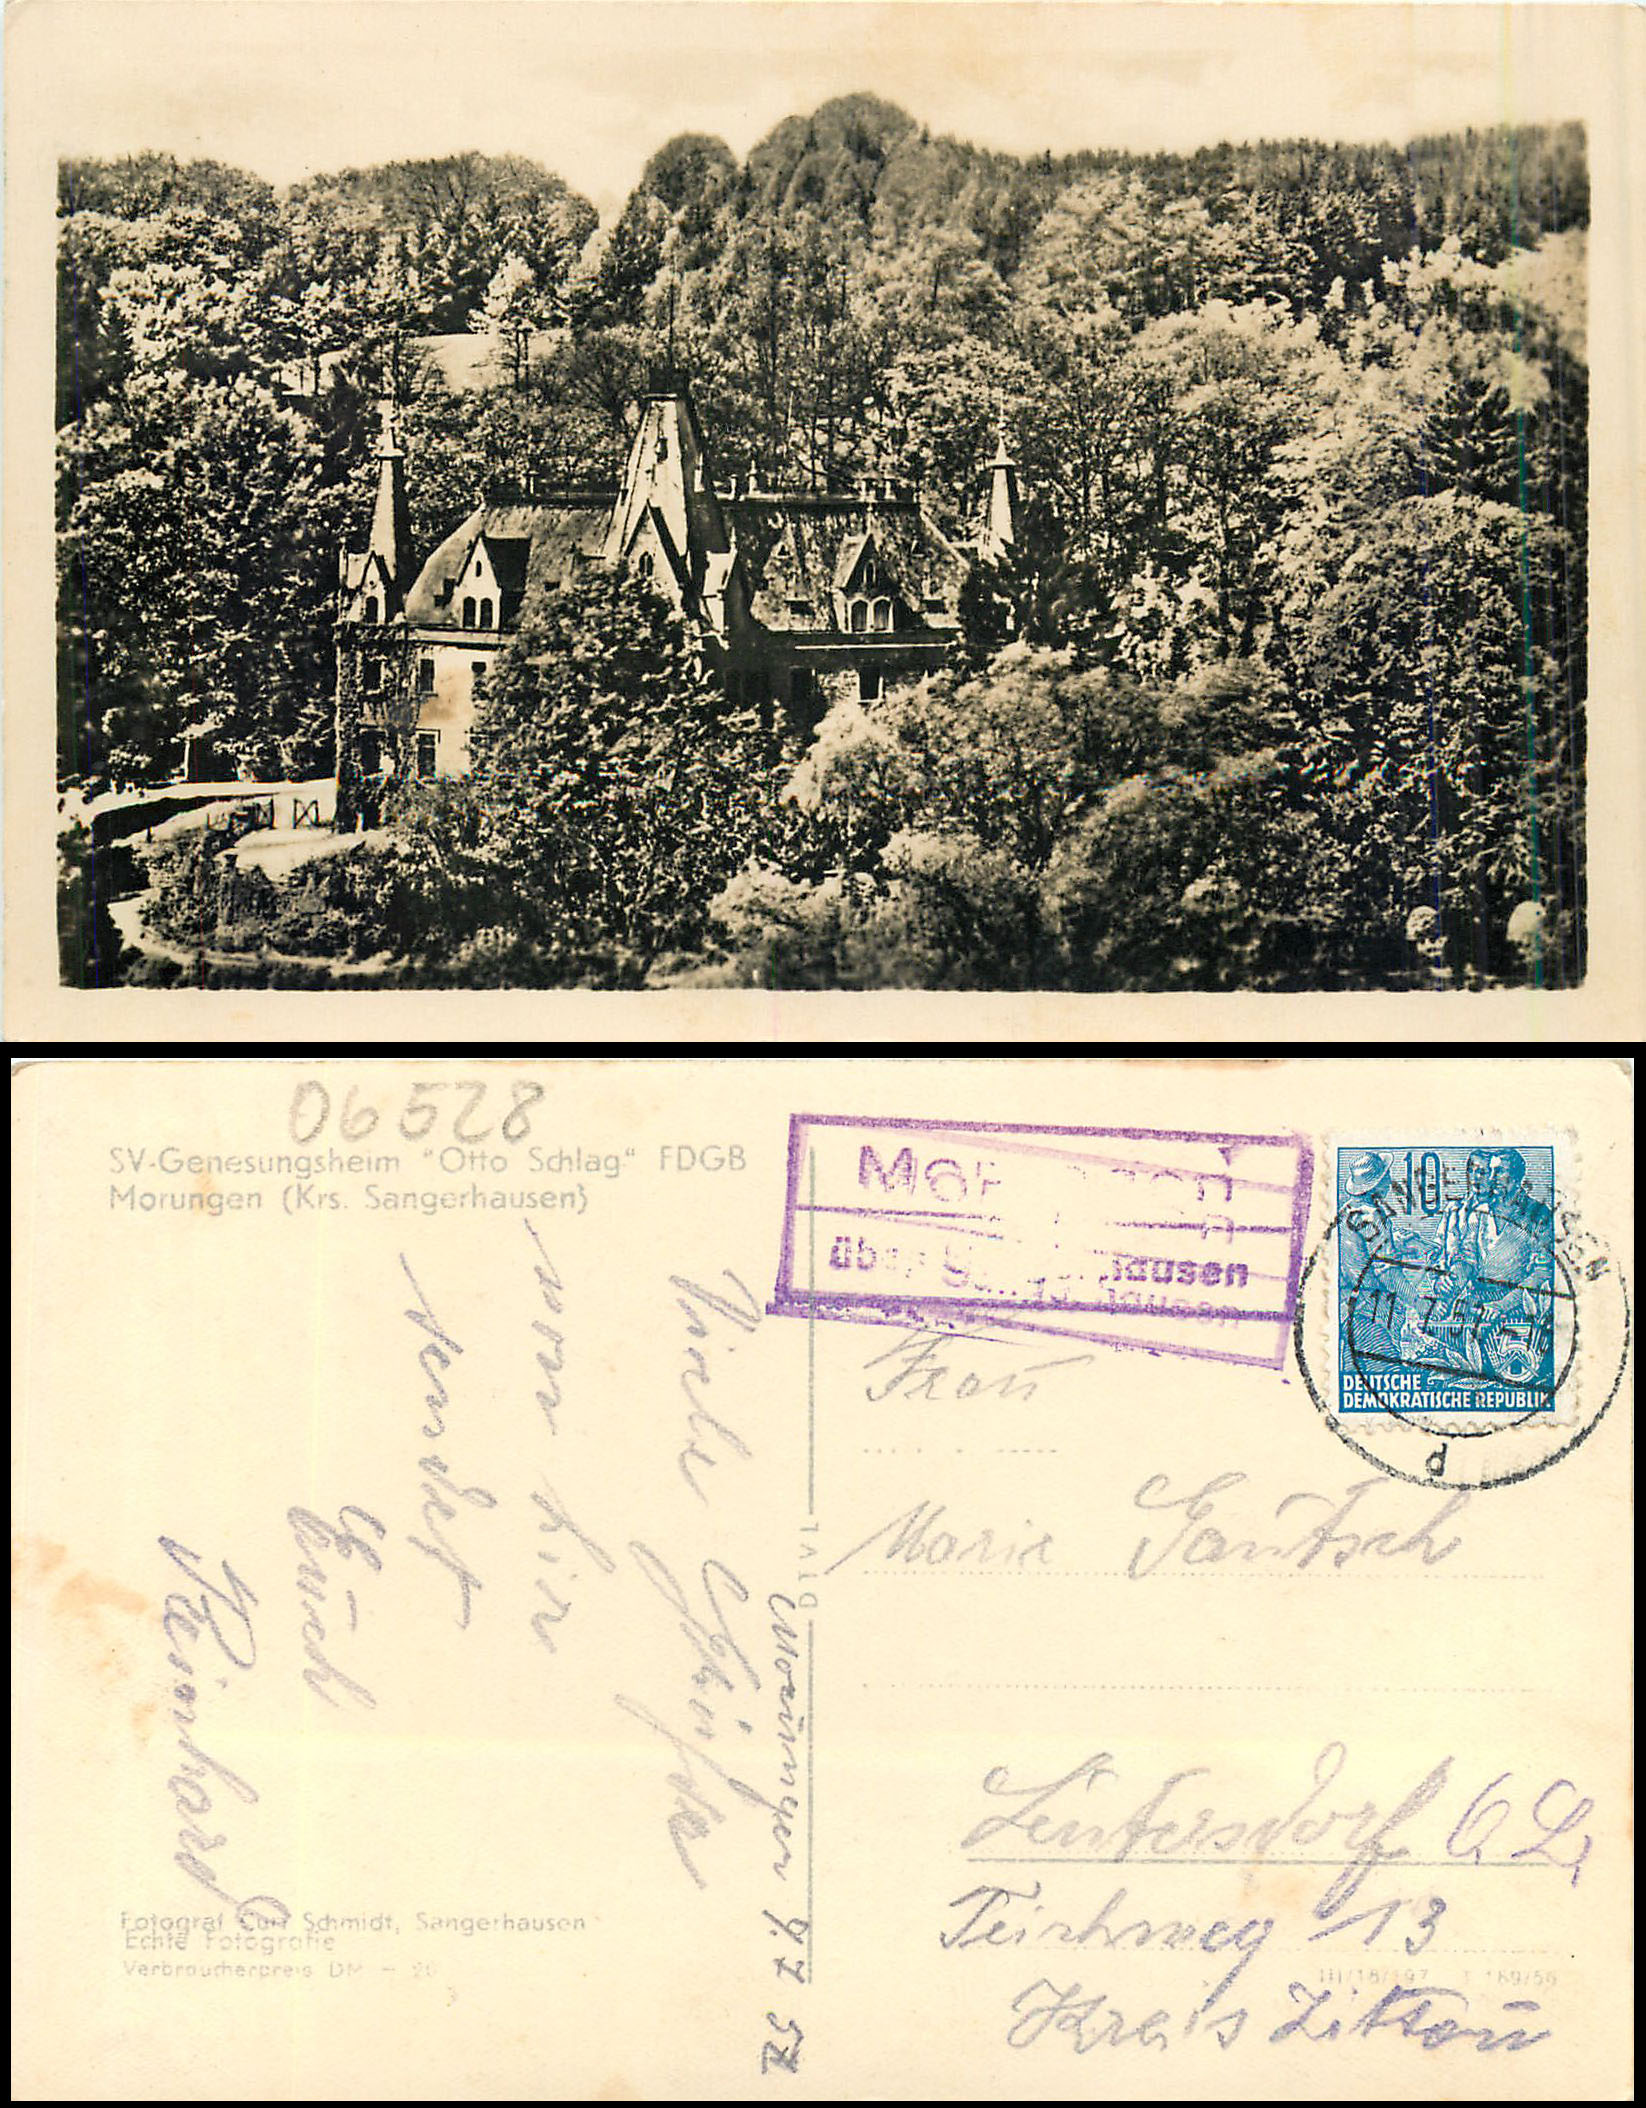 06528
SV-Genesungsheim "Otto Schlag" FDGB
Morungen (Krs. Sangerhausen)
Morungen
über Sangerhausen
10
5
DEUTSCHE
DEMOKRATISCHE REPUBLIK
SANGERHAUSEN
11.7.57
d
Morungen 9.7.57
Viele Grüße
von hir
sendet
Euch
Reinhard
Frau
Marie Gäutsch
Leutersdorf O.L.
Teichweg 13
Kreis Zittau
Fotograf Curt Schmidt, Sangerhausen
Echte Fotografie
Verbraucherpreis DM - 20
III/18/197 T 189/56